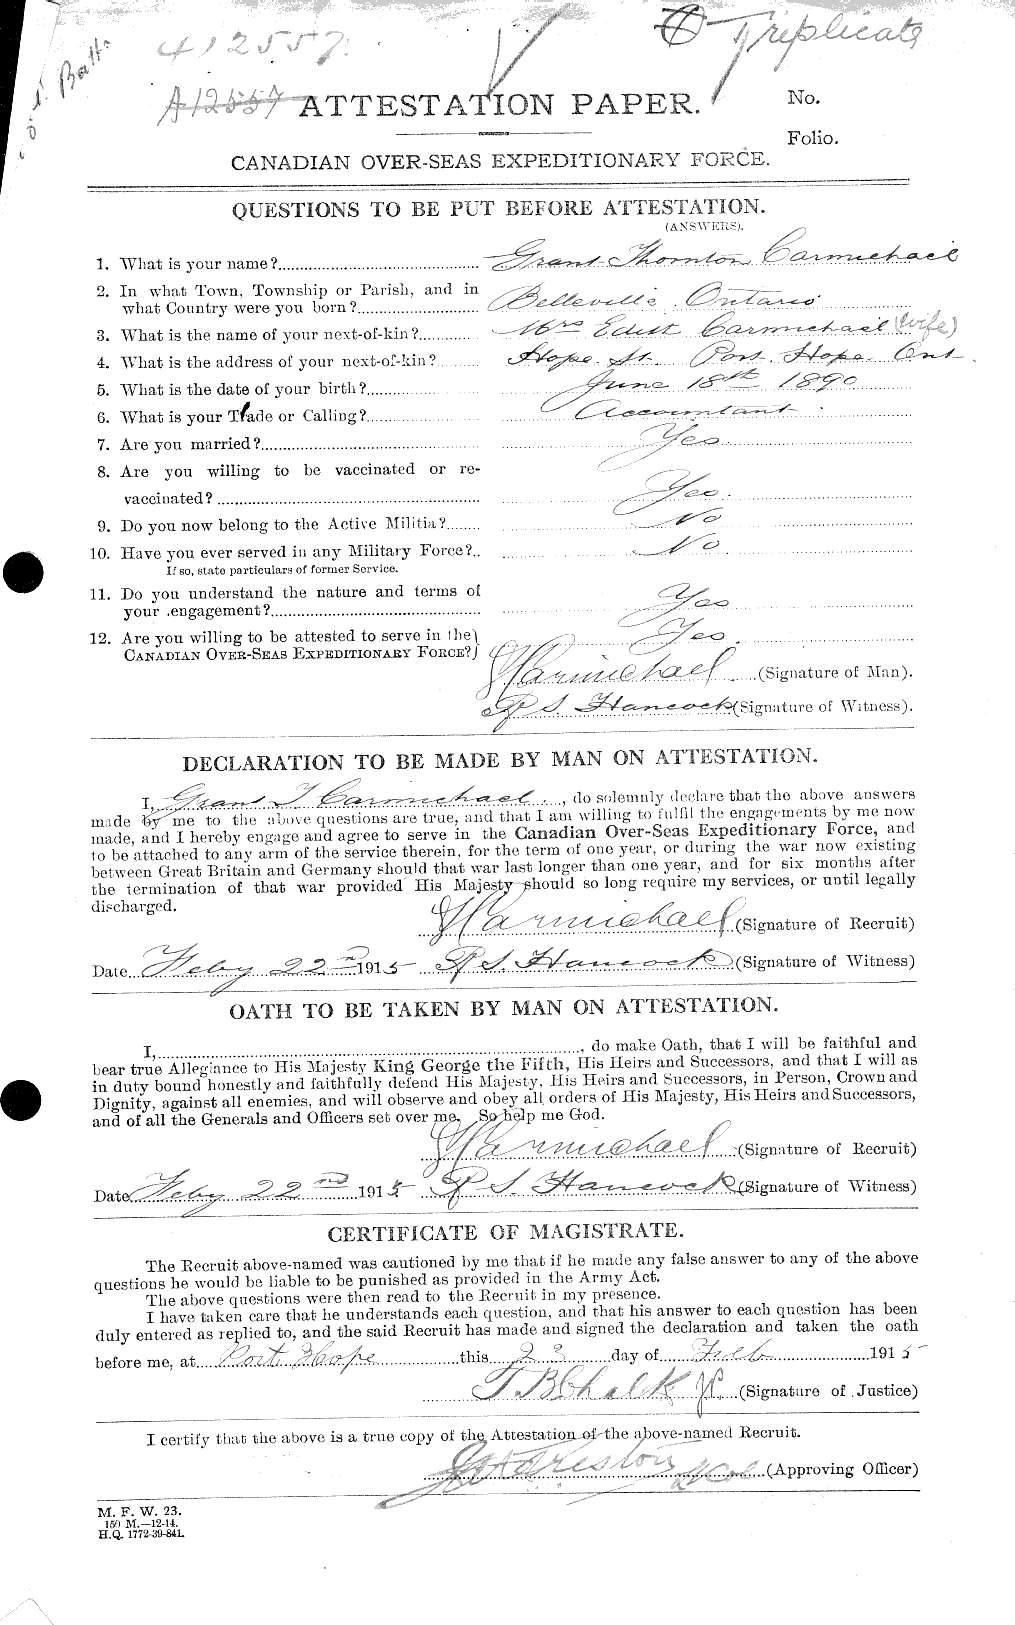 412557.
Triplicate
Batt.
A12557 ATTESTATION PAPER.
No.
Folio.
CANADIAN OVER-SEAS EXPEDITIONARY FORCE.
QUESTIONS TO BE PUT BEFORE ATTESTATION.
(ANSWERS).
1. What is your name? Grant Thornton Carmichael
2. In what Town, Township or Parish, and in
what Country were you born? Belleville Ontario
3. What is the name of your next-of-kin? Mrs Edith Carmichael (wife)
4. What is the address of your next-of-kin? Hope St. Port Hope Ont.
5. What is the date of your birth? June 18th 1890
6. What is your Trade or Calling? Accountant.
7. Are you married? Yes
8. Are you willing to be vaccinated or re-
vaccinated? Yes.
9. Do you now belong to the Active Militia? No
10. Have you ever served in any Military Force?.. No.
If so, state particulars of former Service.
11. Do you understand the nature and terms of
your engagement? Yes
12. Are you willing to be attested to serve in the
CANADIAN OVER-SEAS EXPEDITIONARY FORCE? Yes.
Carmichael (Signature of Man).
R S. Hancock (Signature of Witness).
DECLARATION TO BE MADE BY MAN ON ATTESTATION.
I, Grant T Carmichael, do solemnly declare that the above answers
made by me to the above questions are true, and that I am willing to fulfil the engagements by me now
made, and I hereby engage and agree to serve in the Canadian Over-Seas Expeditionary Force, and
to be attached to any arm of the service therein, for the term of one year, or during the war now existing
between Great Britain and Germany should that war last longer than one year, and for six months after
the termination of that war provided His Majesty should so long require my services, or until legally
discharged.
Carmichael (Signature of Recruit)
Date Feby 22nd 1915 R S. Hancock (Signature of Witness)
OATH TO BE TAKEN BY MAN ON ATTESTATION.
I, , do make Oath, that I will be faithful and
bear true Allegiance to His Majesty King George the Fifth, His Heirs and Successors, and that I will as
in duty bound honestly and faithfully defend His Majesty, His Heirs and Successors, in Person, Crown and
Dignity, against all enemies, and will observe and obey all orders of His Majesty, His Heirs and Successors,
and of all the Generals and Officers set over me. So help me God.
Carmichael (Signature of Recruit)
Date Feby 22nd 1915 R S. Hancock (Signature of Witness)
CERTIFICATE OF MAGISTRATE.
The Recruit above-named was cautioned by me that if he made any false answer to any of the above
questions he would be liable to be punished as provided in the Army Act.
The above questions were then read to the Recruit in my presence.
I have taken care that he understands each question, and that his answer to each question has been
duly entered as replied to, and the said Recruit has made and signed the declaration and taken the oath
before me, at Port Hope this 23 day of Feb 1915
T B Chalk J.P. (Signature of Justice)
I certify that the above is a true copy of the Attestation of the above-named Recruit.
Preston (Approving Officer)
M. F. W. 23.
150 M.—12-14.
H.Q. 1772-39-841.